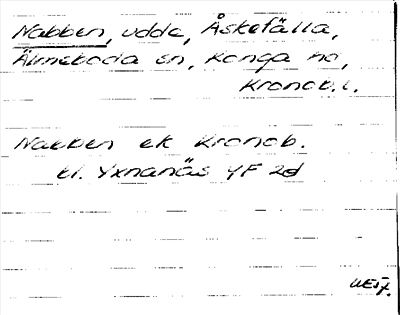 Nabben, udde, Åskefälla,
Älmeboda sn, Konga hd,
Kronob. l.
Nabben ek Kronob.
bl. Yxnanäs 4F 2d